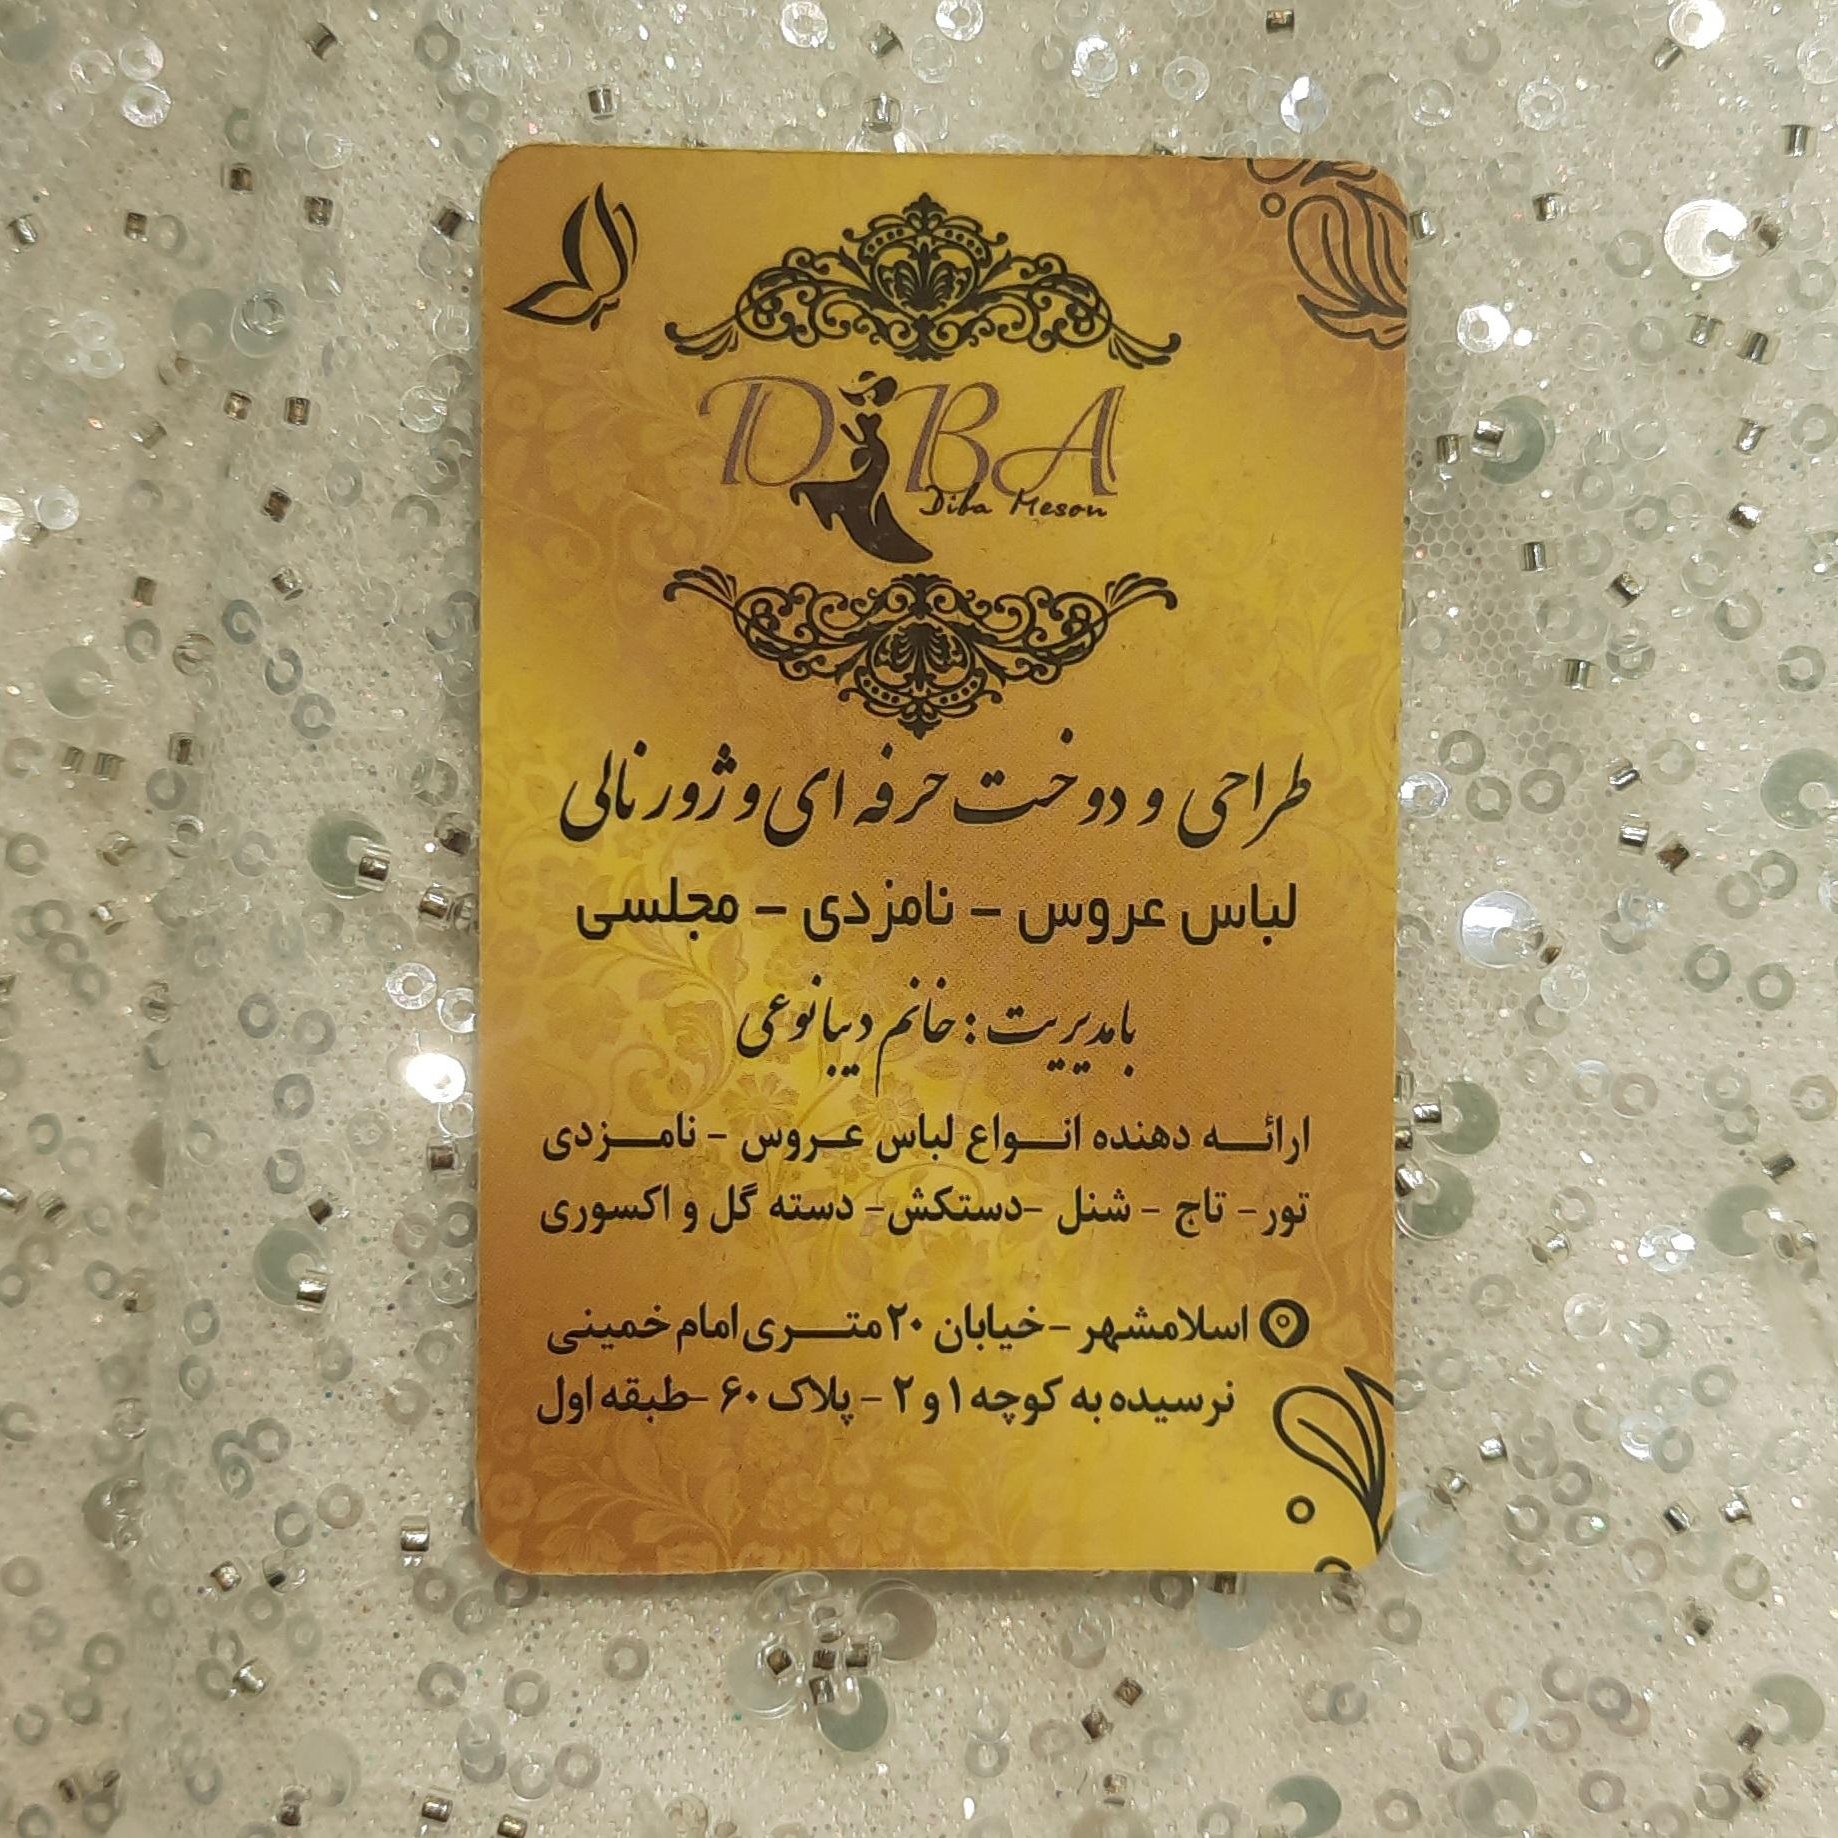 DiBA
Diba Meson
طراحی و دوخت حرفه ای و ژورنالی
لباس عروس – نامزدی – مجلسی
با مدیریت : خانم دیبا نوعی
ارائه دهنده انواع لباس عروس – نامزدی
تور – تاج – شنل – دستکش – دسته گل و اکسوری
اسلامشهر – خیابان ۲۰ متری امام خمینی
نرسیده به کوچه ۱ و ۲ – پلاک ۶۰ – طبقه اول